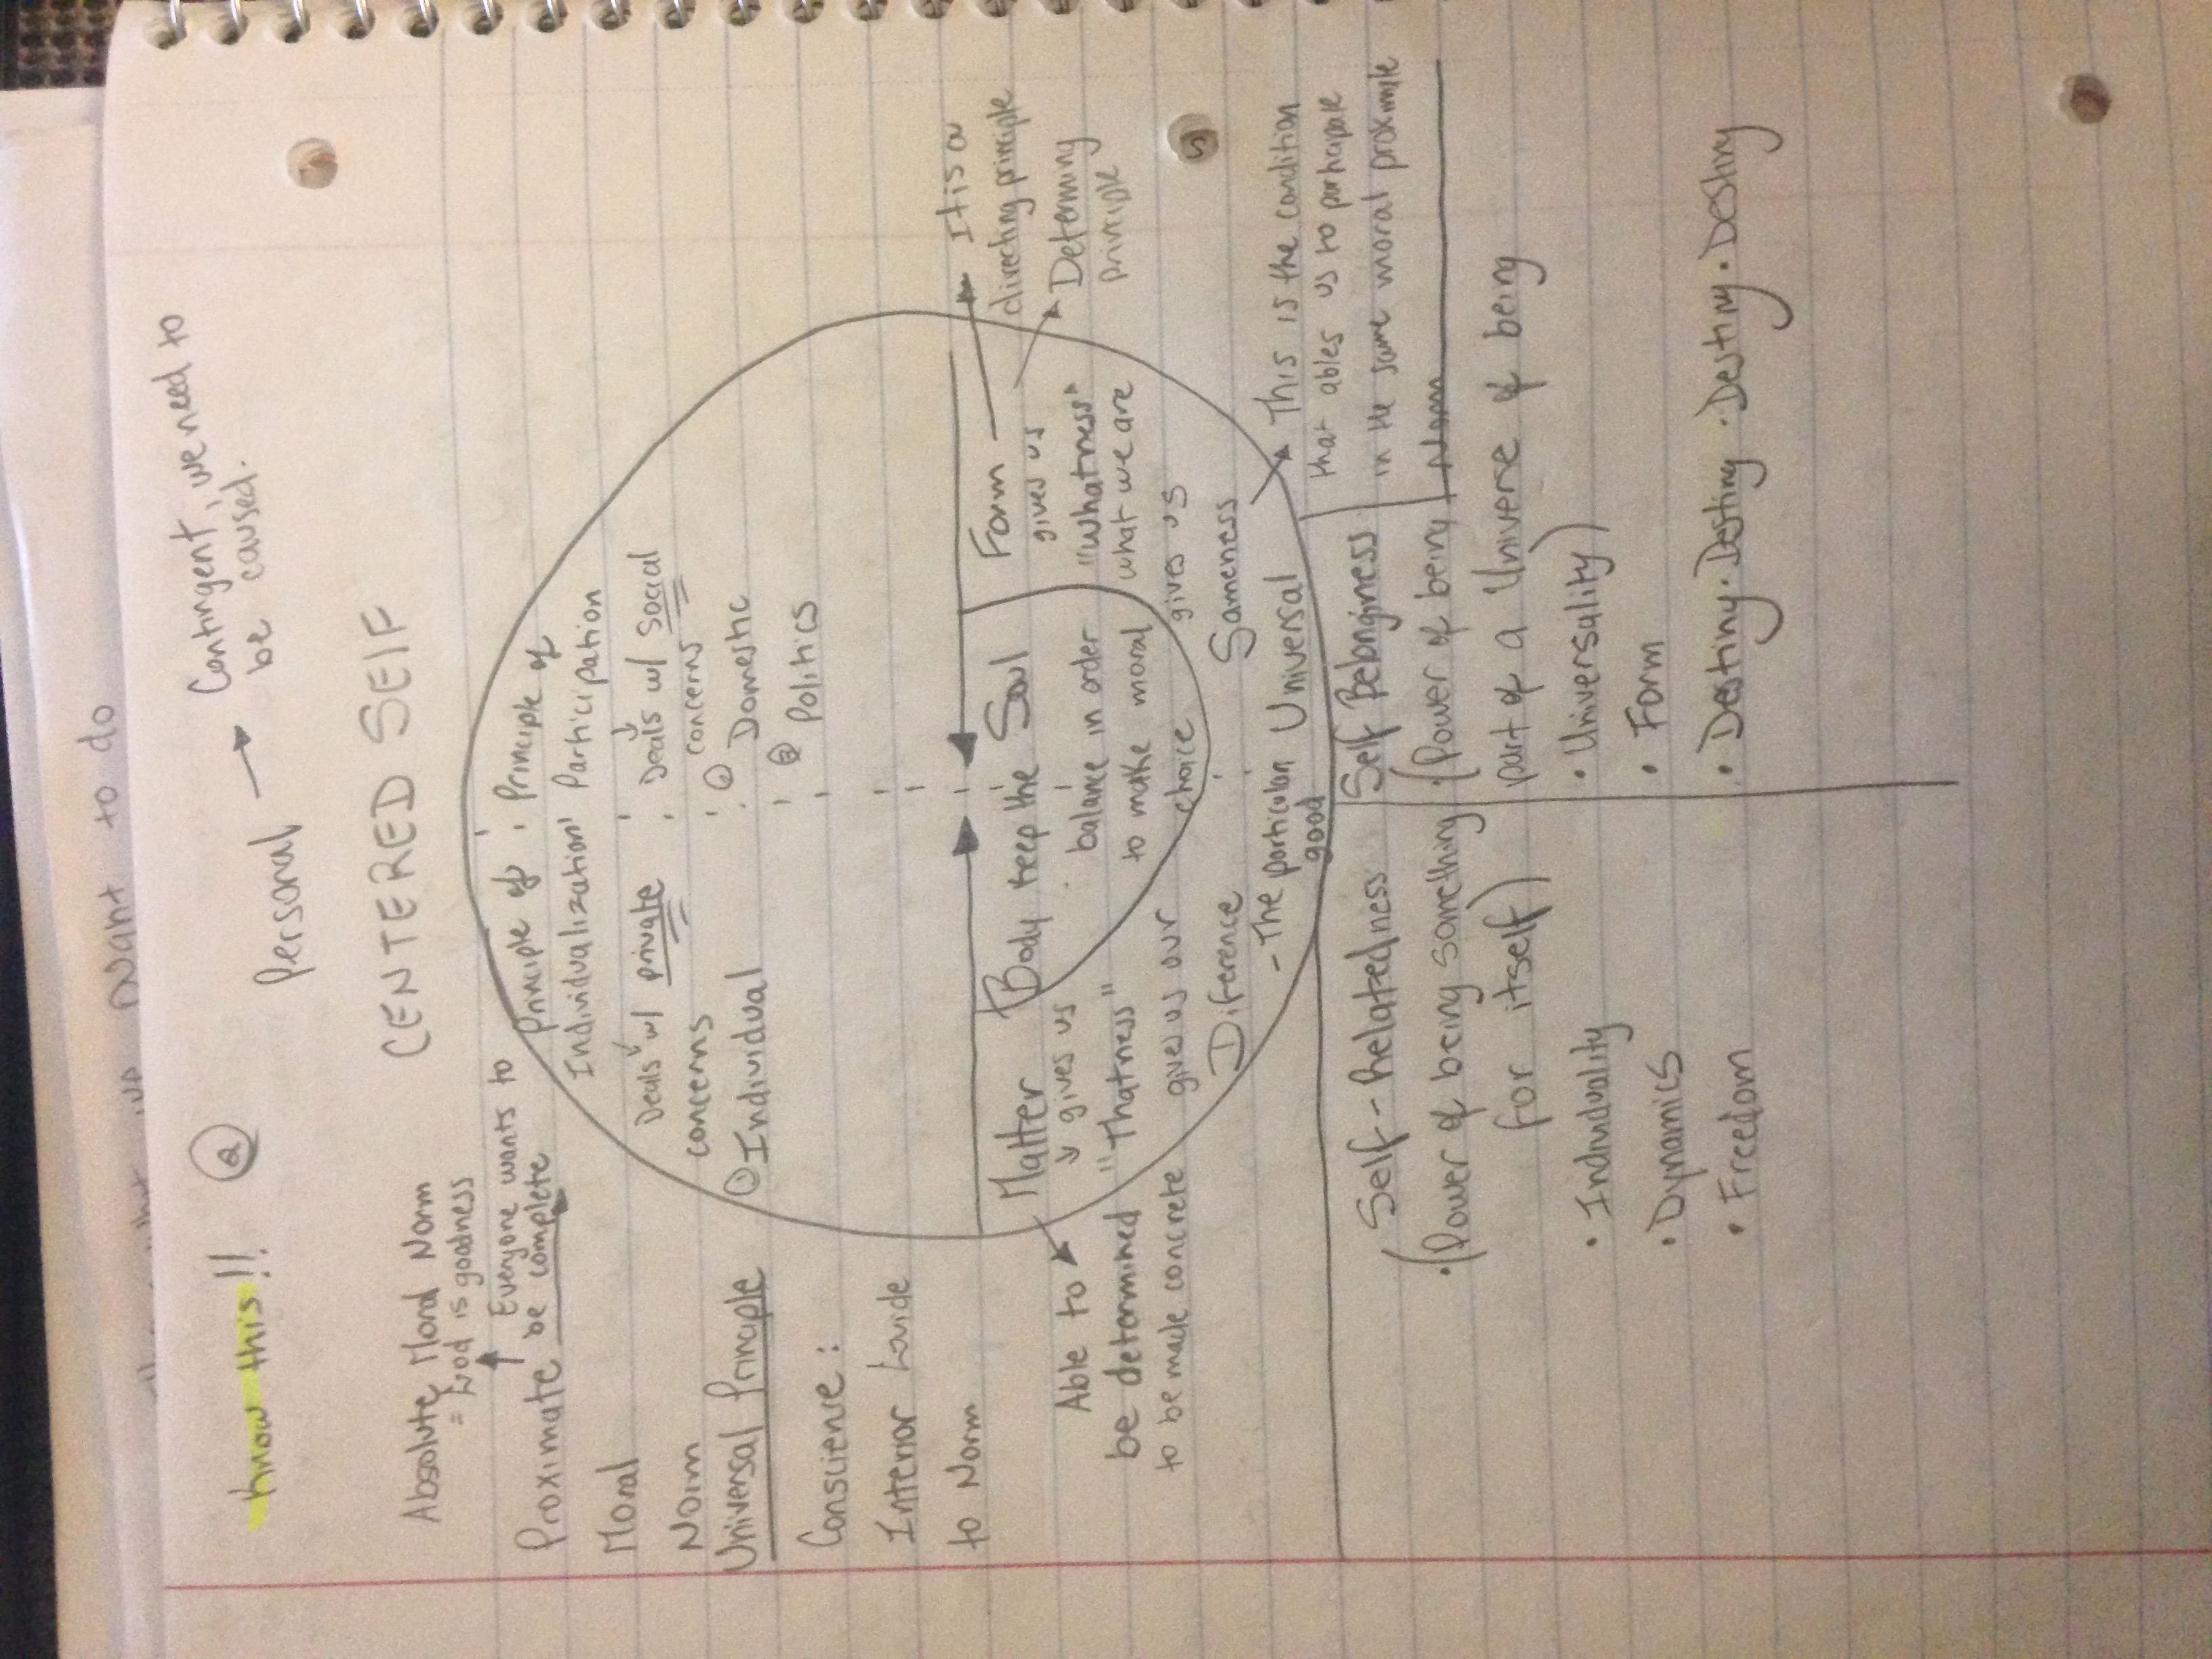 Want to do
know this!!
②
Personal → Contingent, we need to
be caused.
CENTERED SELF
Absolute Moral Norm
= God is goodness
Everyone wants to
be complete
Proximate
Moral
Norm
Universal Principle
Conscience:
Interior Guide
to Norm
Principle of
Individualization
Deals w/ private
concerns
① Individual
Principle of
Participation
Deals w/ social
concerns
① Domestic
② Politics
Matter
gives us
"Thatness"
gives us our
Diference
- The particular
good
Able to
be determined
to be made concrete
Body Soul
keep the
balance in order
to make moral
choice
Form
gives us
"Whatness"
what we are
gives us
Sameness
Universal
It is a
directing principle
Determing
principle
This is the condition
that ables us to participate
in the same moral proximate
Norm
Self-Relatedness
• (Power of being something
for itself)
• Individuality
• Dynamics
• Freedom
Self Belonginess
• (Power of being
part of a Universe of being
• Universality)
• Form
• Destiny • Destiny • Destiny • Destiny • Destiny